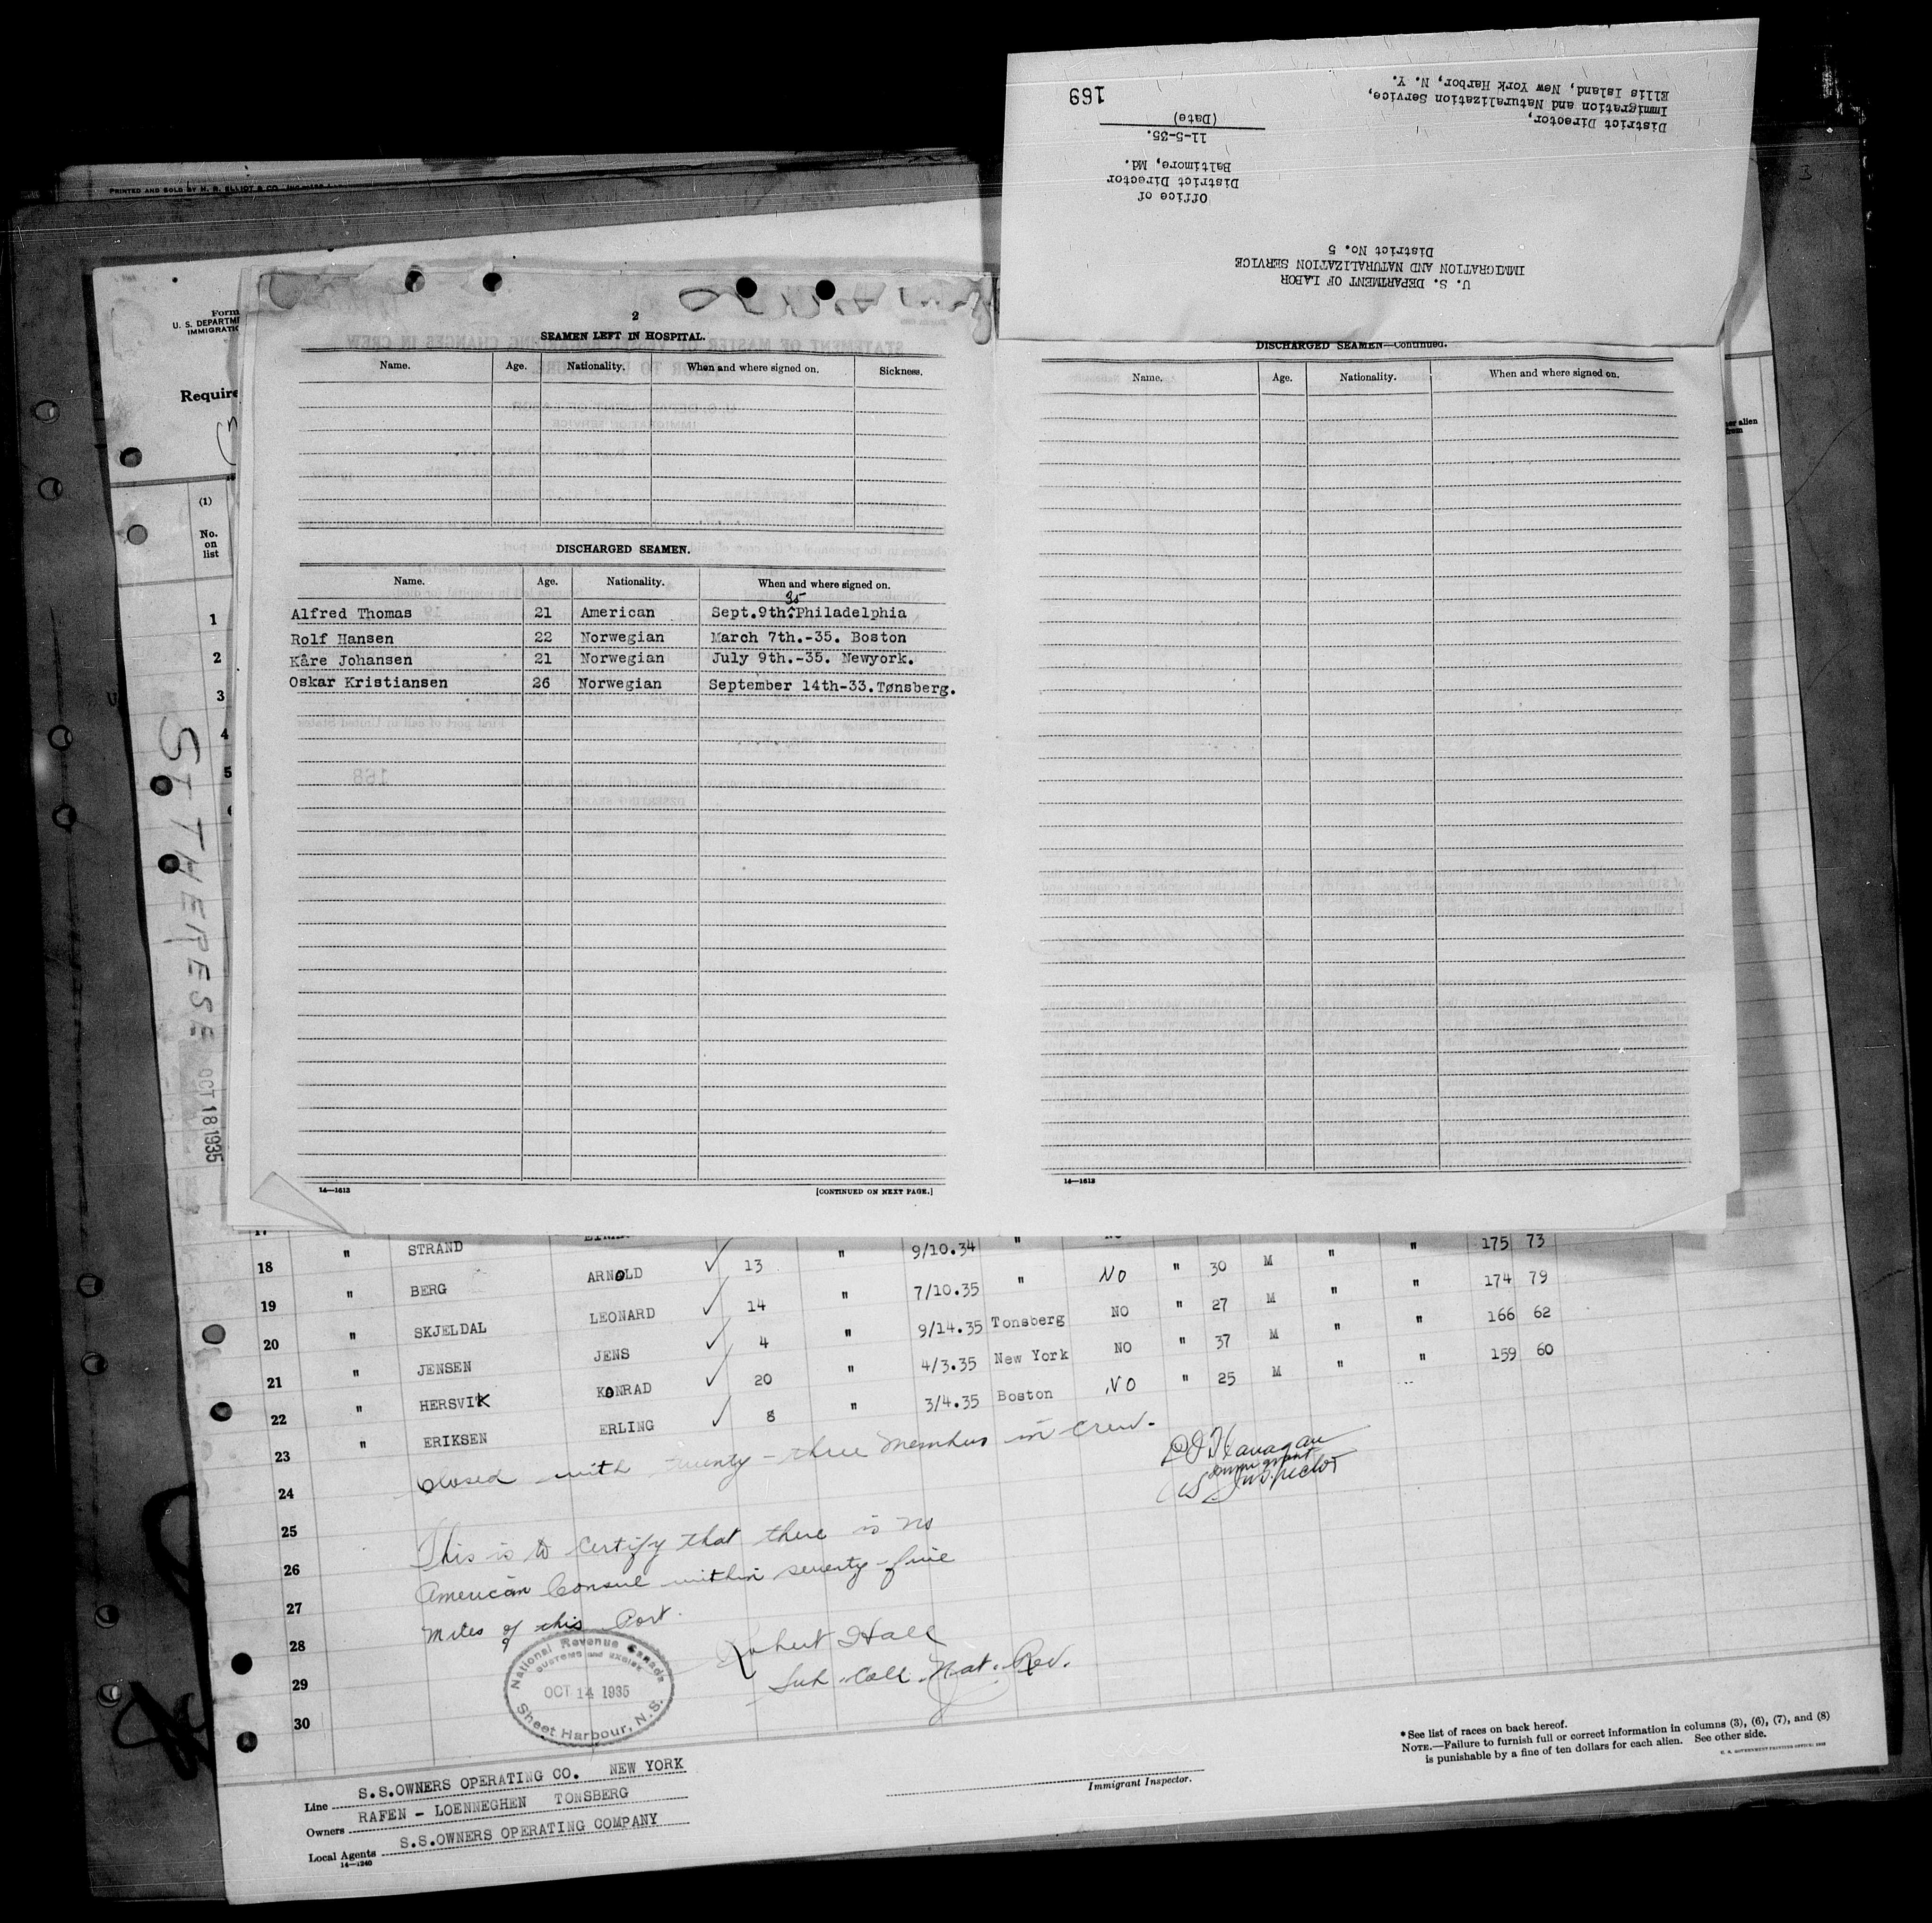 PRINTED AND SOLD BY H. R. ELLIOT & CO. INC
169
District Director,
Immigration and Naturalization Service,
Ellis Island, New York Harbor, N. Y.
11-5-35.
(Date)
Office of
District Director
Baltimore, Md.
U. S. DEPARTMENT OF LABOR
IMMIGRATION AND NATURALIZATION SERVICE
District No. 5
3
Form
U. S. DEPARTME
IMMIGRATIO
Require
(1)
No.
on
list
1
2
3
4
5
ST THERESE OCT 18 1935
2
SEAMEN LEFT IN HOSPITAL.
Name. Age. Nationality. When and where signed on. Sickness.
DISCHARGED SEAMEN.
Name. Age. Nationality. When and where signed on.
35
Alfred Thomas 21 American Sept.9th. Philadelphia
Rolf Hansen 22 Norwegian March 7th.-35. Boston
Kåre Johansen 21 Norwegian July 9th.-35. Newyork.
Oskar Kristiansen 26 Norwegian September 14th-33.Tønsberg.
168
14—1613 [CONTINUED ON NEXT PAGE.]
DISCHARGED SEAMEN—Continued.
Name. Age. Nationality. When and where signed on.
14—1613
er alien
from
17
18 " STRAND ARNOLD ✓ 13 " 9/10.34 " NO " 30 M " " 175 73
19 " BERG LEONARD ✓ 14 " 7/10.35 " NO " 27 M " " 174 79
20 " SKJELDAL JENS ✓ 4 " 9/14.35 Tonsberg NO " 37 M " " 166 62
21 " JENSEN KONRAD ✓ 20 " 4/3.35 New York NO " 25 M " " 159 60
22 " HERSVIK ERLING ✓ 8 " 3/4.35 Boston
23 " ERIKSEN
Closed with twenty-three members in crew.
24
25
26
27
28
29
30
D J Flanagan
Immigrant
US Inspector
This is to certify that there is no
American Consul within seventy-five
miles of this Port.
Robert Hall
Sub. Coll. Nat. Rev.
National Revenue Canada
CUSTOMS and EXCISE
OCT 14 1935
Sheet Harbour, N.S.
Line S.S.OWNERS OPERATING CO. NEW YORK
Owners RAFEN - LOENNEGHEN TONSBERG
Local Agents S.S.OWNERS OPERATING COMPANY
14—1240
Immigrant Inspector.
*See list of races on back hereof.
NOTE.—Failure to furnish full or correct information in columns (3), (6), (7), and (8)
is punishable by a fine of ten dollars for each alien. See other side.
U. S. GOVERNMENT PRINTING OFFICE: